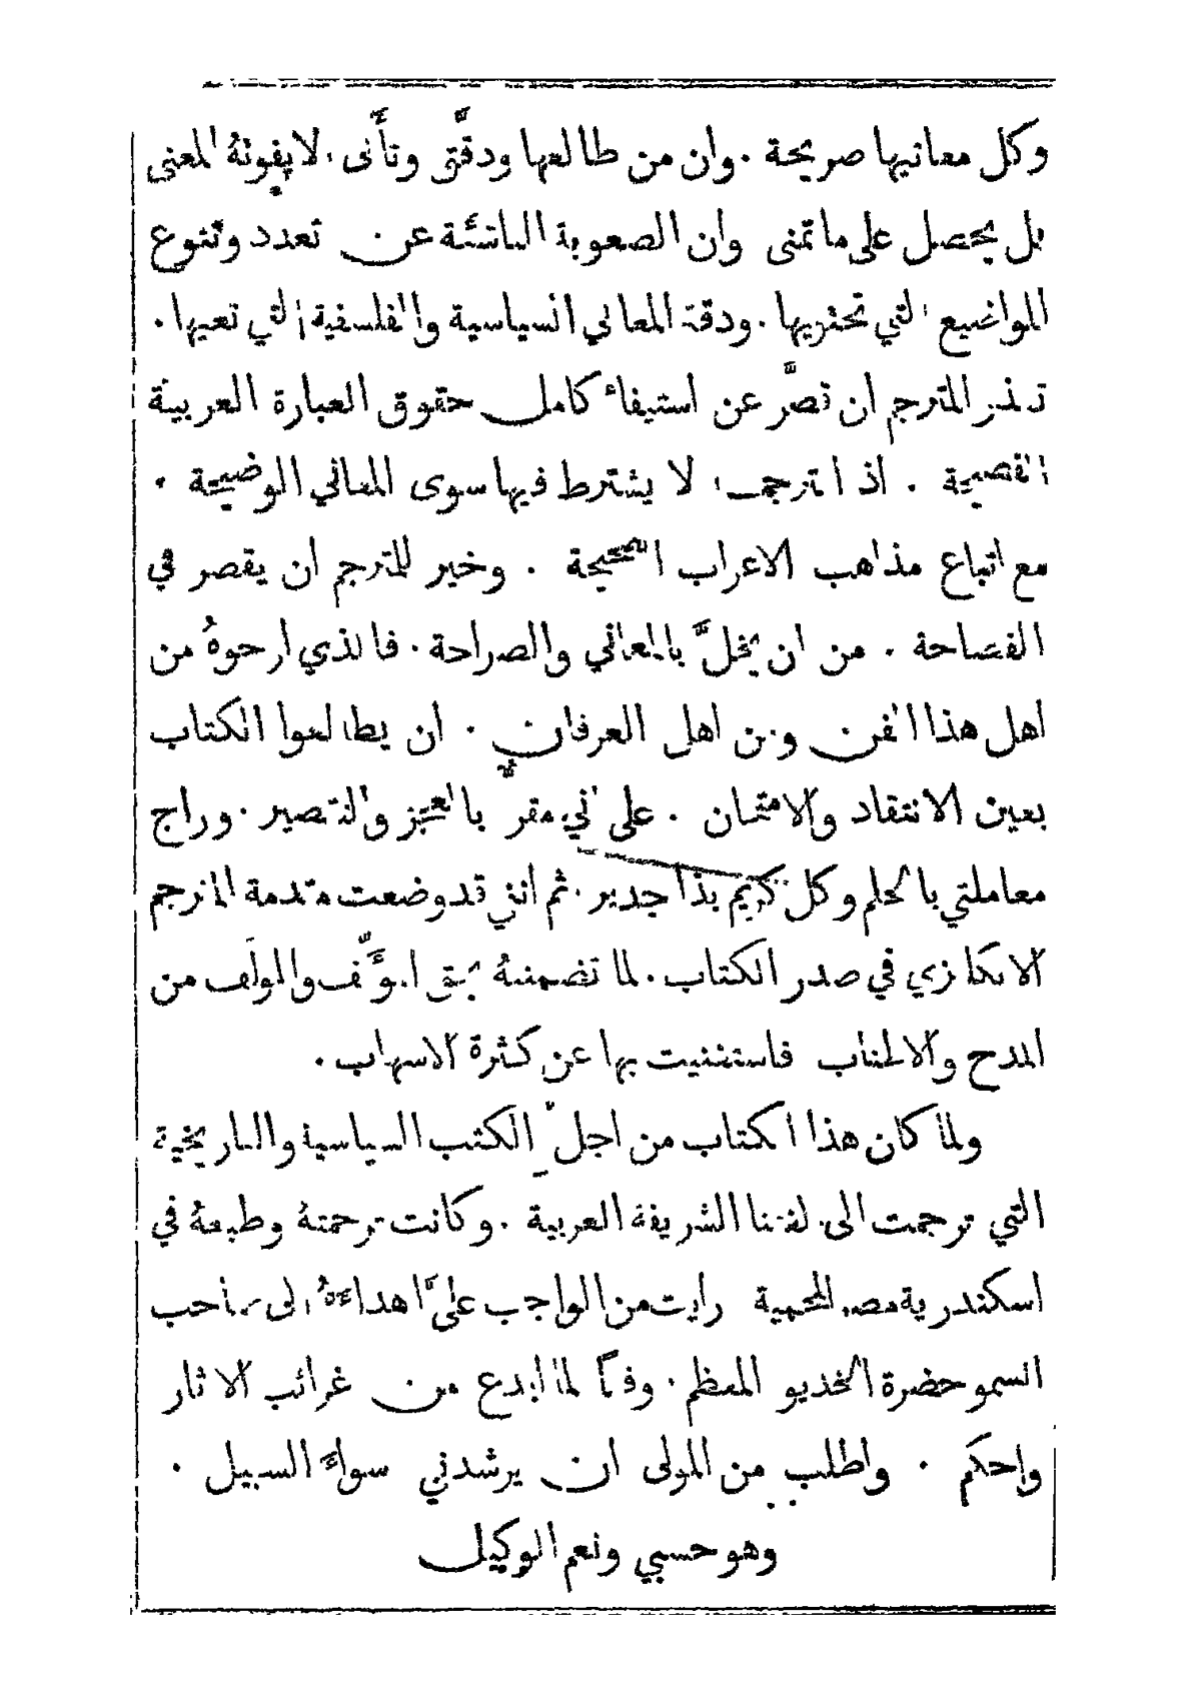 وكل معانيها صريحة . وان من طالعها ودقَّق وتأَنى . لا يفوتهُ المعنى
بل يحصل على ما تمنى وان الصعوبة الناشئة عن تعدد وتنوع
المواضيع التي تحتويها . ودقة المعاني السياسية والفلسفية التي تعيها .
تعذر المترجم ان قصَّر عن استيفاء كامل حقوق العبارة العربية
الفصيحة . اذ المترجمات لا يشترط فيها سوى المعاني الوضيحة .
مع اتباع مذاهب الاعراب الصحيحة . وخير للمترجم ان يقصر في
الفصاحة . من ان يخلَّ بالمعاني والصراحة . فالذي ارجوهُ من
اهل هذا الفن ومن اهل العرفان . ان يطالعوا الكتاب
بعين الانتقاد والامتحان . على اني مقرٌّ بالعجز والتقصير . وراج
معاملتي بالحلم وكل كريم بذا جدير . ثم انني قد وضعت مقدمة المترجم
الانكليزي في صدر الكتاب . لما تضمنتهُ بحق المؤَلِّف والمؤلَف من
المدح والاطناب فاستغنيت بها عن كثرة الاسهاب .
ولما كان هذا الكتاب من اجلّ الكتب السياسية والتاريخية
التي ترجمت الى لغتنا الشريفة العربية . وكانت ترجمتهُ وطبعهُ في
اسكندرية مصر المحمية رايت من الواجب علىَّ اهداءَهُ الى صاحب
السمو حضرة الخديو المعظم . وفقًا لما ابدع من غرائب الاثار
واحكم . واطلب من المولى ان يرشدني سواءَ السبيل .
وهو حسبي ونعم الوكيل